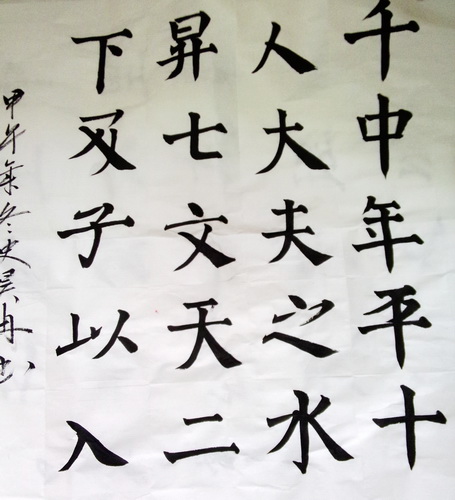 千中年平十
人大夫之水
昇七文天二
下及子以入
甲午年冬史昊冉书